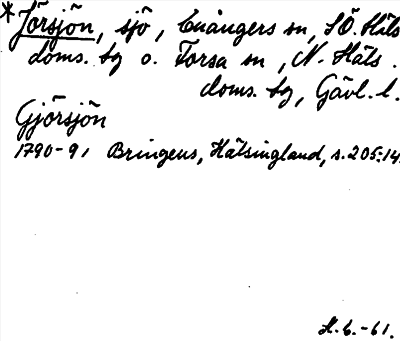 * Jörsjön, sjö, Enångers sn, SÖ. Häls.
doms. bg o. Forsa sn, N. Häls.
doms. bg, Gävl. l.
Gjörsjön
1790-91 Bringeus, Hälsingland, s. 205:14.
H. G. -61.